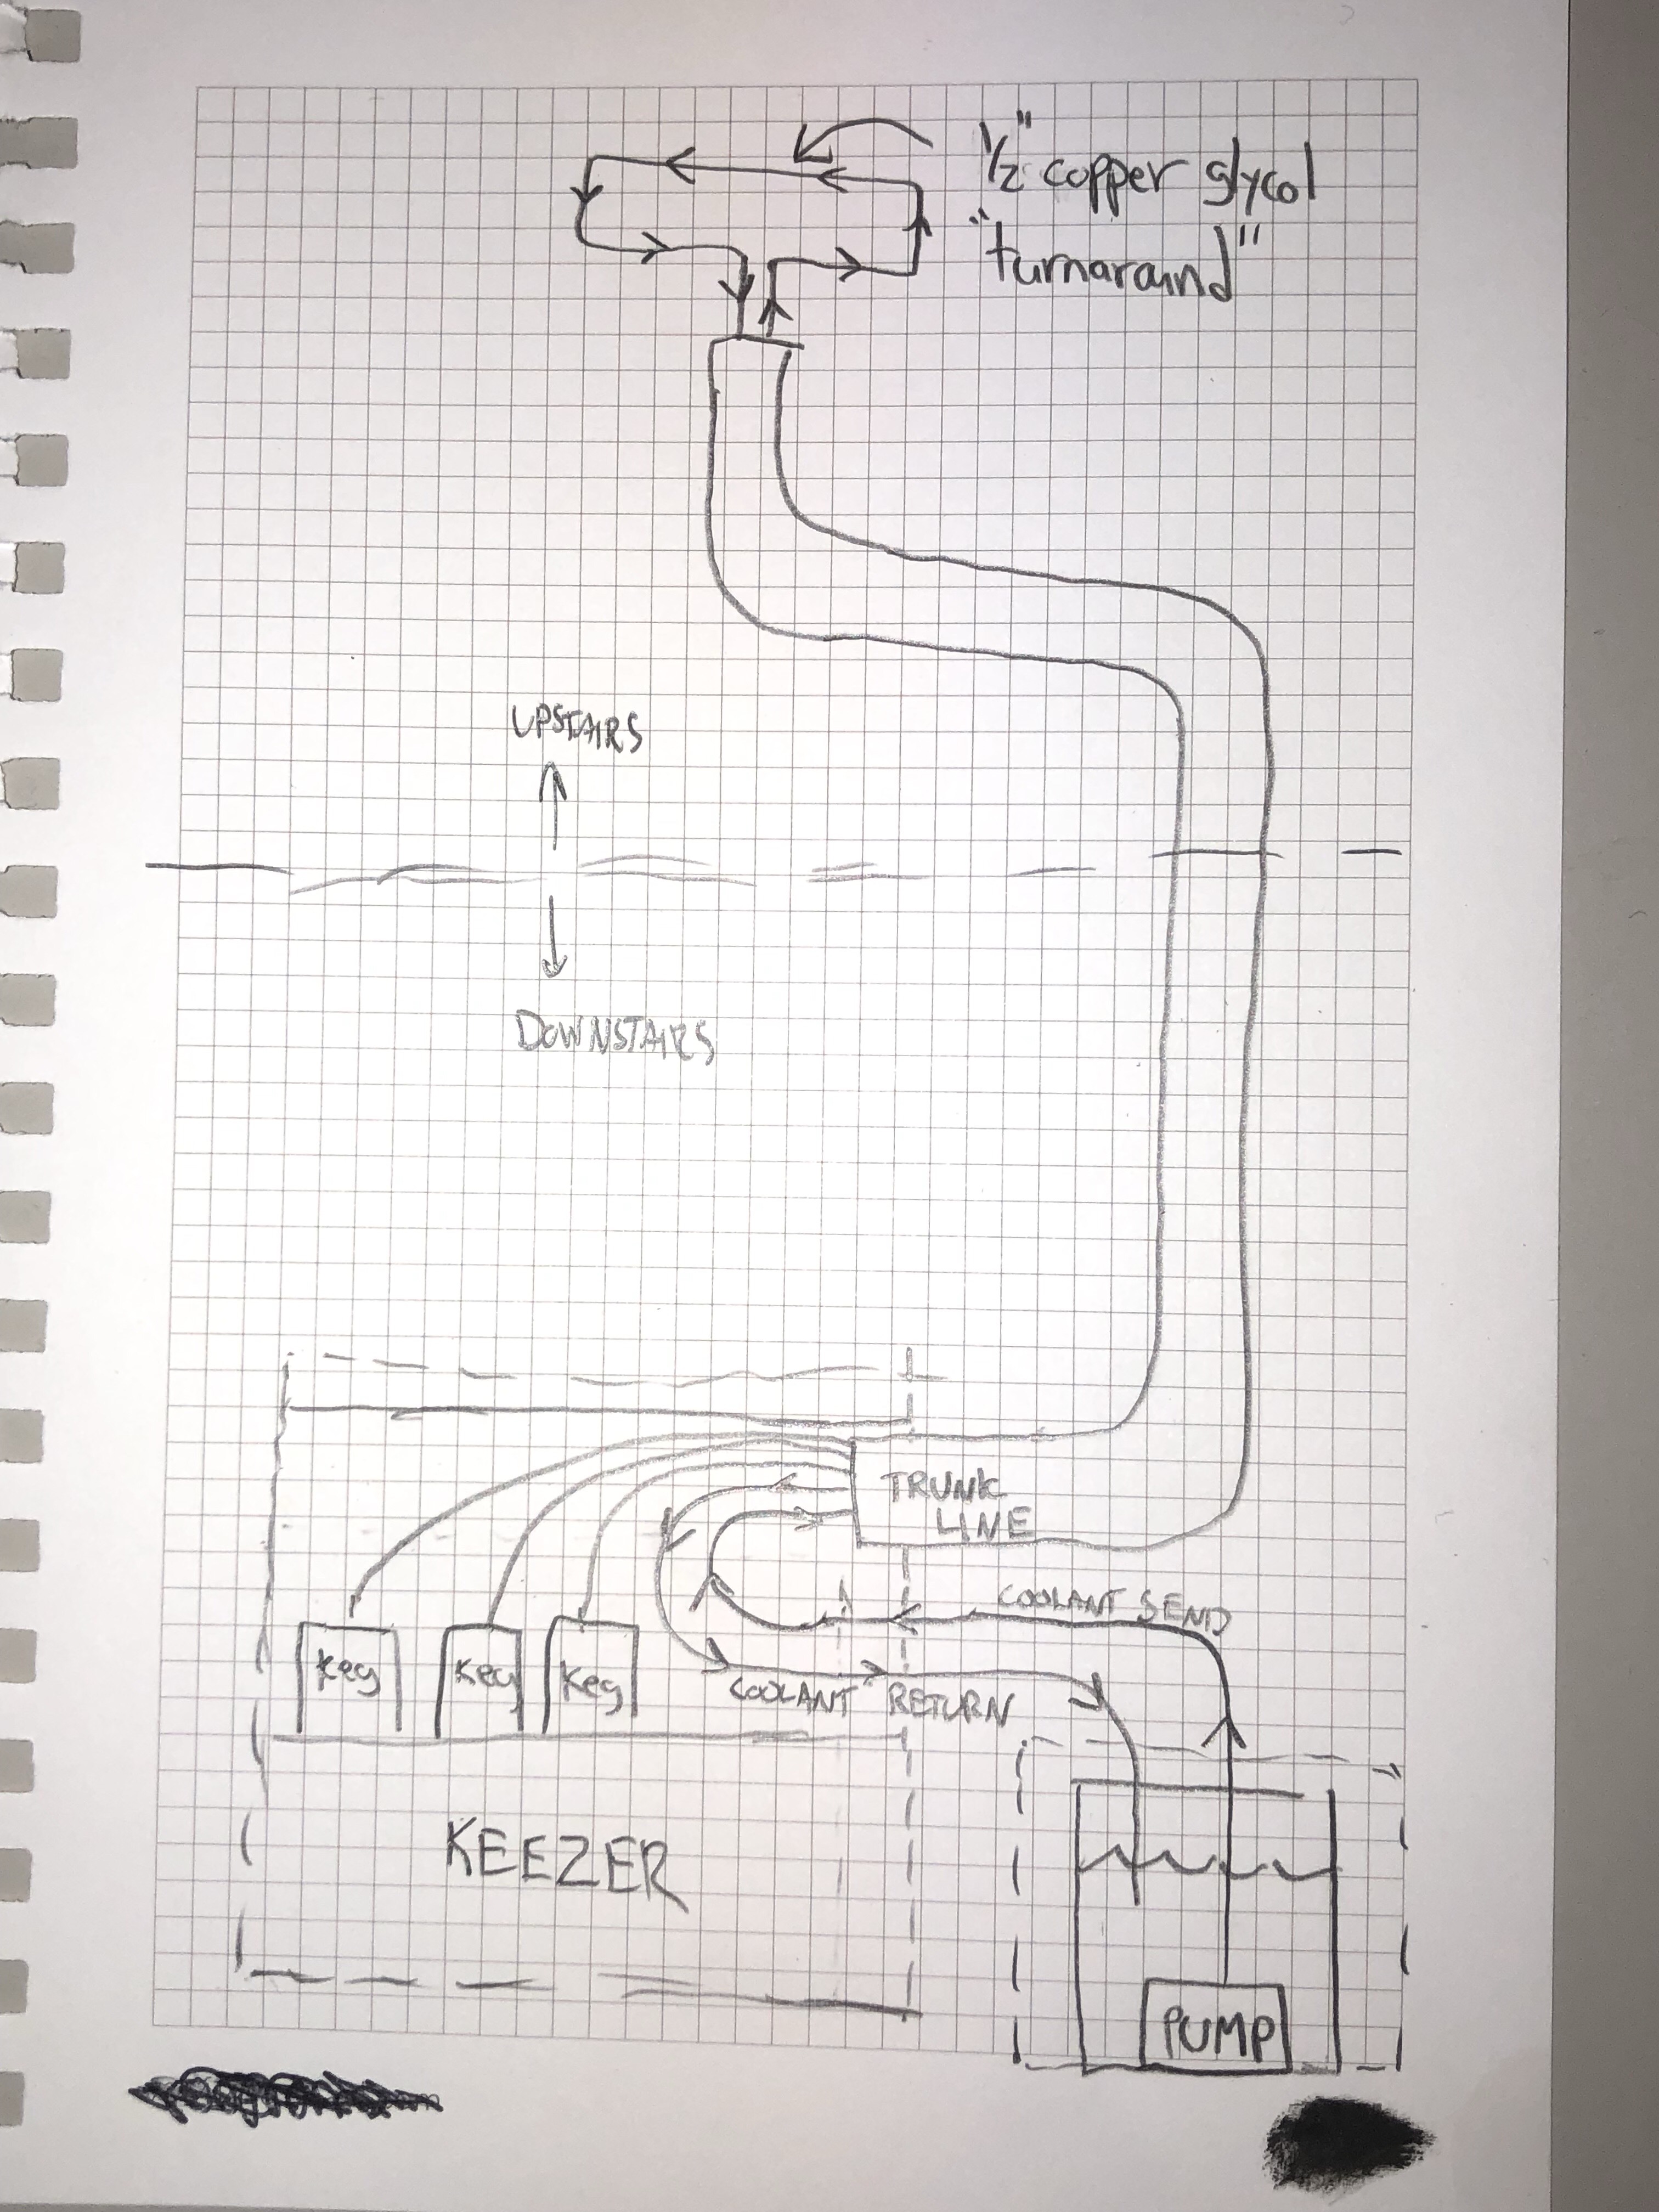 1/2" copper glycol
"turnaround"
UPSTAIRS
DOWNSTAIRS
TRUNK
LINE
COOLANT SEND
keg
keg
keg
COOLANT RETURN
KEEZER
PUMP